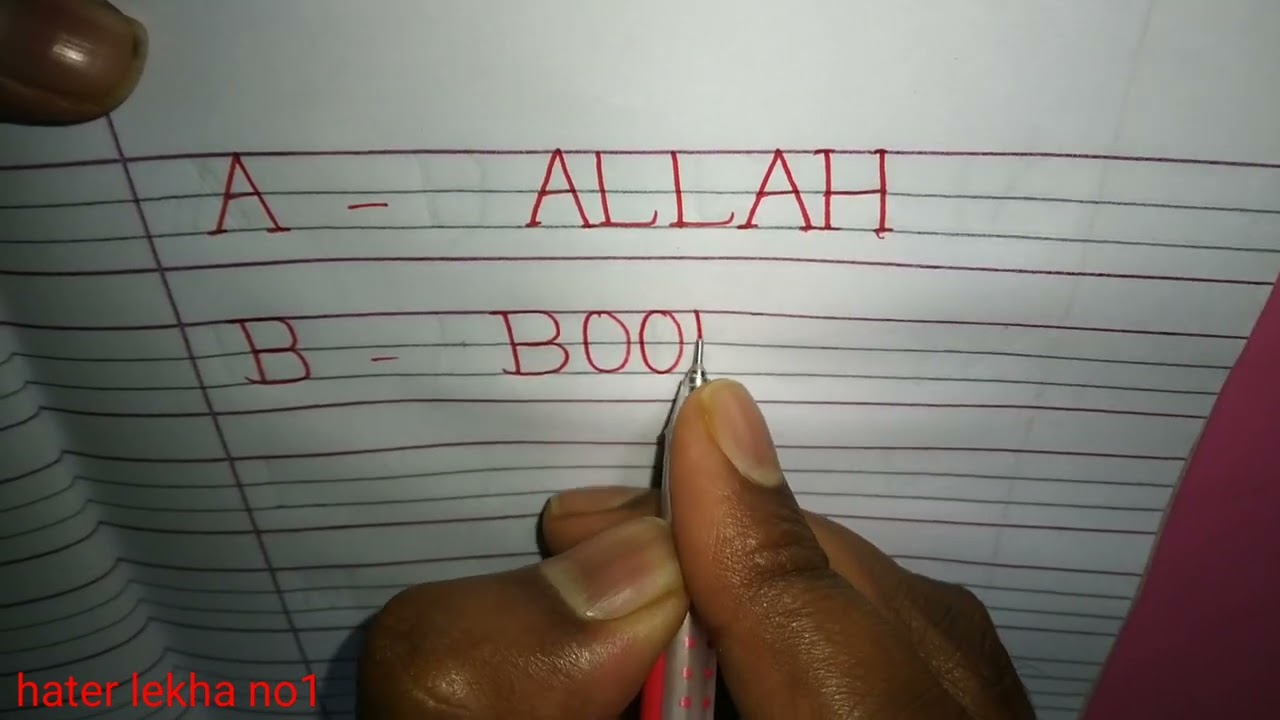 A - ALLAH
B - BOO
hater lekha no1